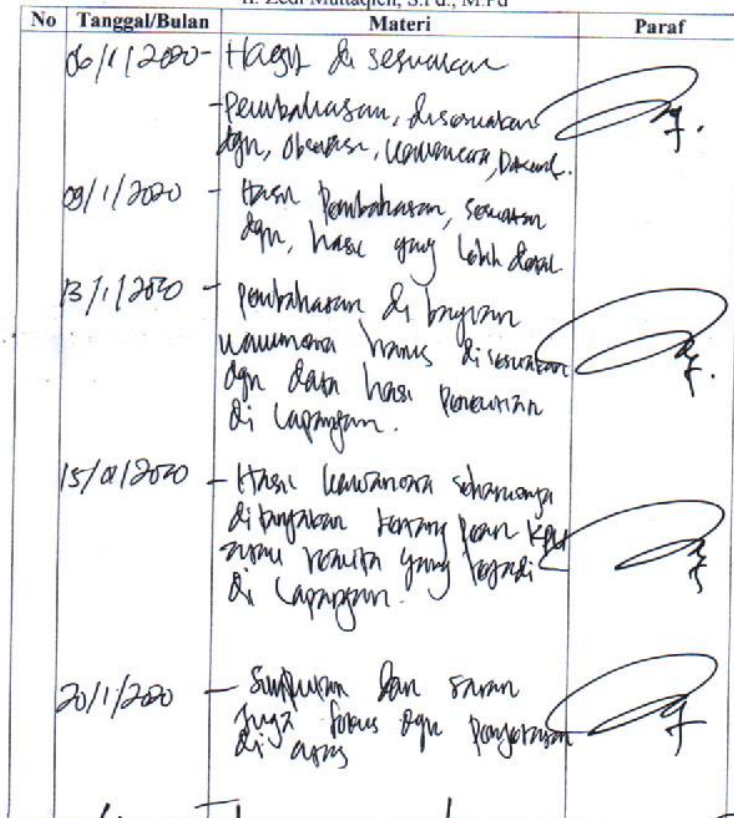 II. Zedi Muttaqien, S.Pd., M.Pd
No Tanggal/Bulan Materi Paraf
06/1/2020 - Hasil di sesuaikan
- Pembahasan, disesuaikan
dgn, observasi, wawancara, Dokumt.
09/1/2020 - Hasil Pembahasan, sesuaikan
dgn, hasil yang lebih detail
13/1/2020 - pembahasan di bagian
wawancara harus di sesuaikan
dgn data hasil penelitian
di lapangan.
15/01/2020 - Hasil wawancara seharusnya
ditanyakan tentang peran KPU
atau realita yang terjadi
di lapangan.
20/1/2020 - Simpulan dan saran
juga fokus dgn penjelasan
di atas